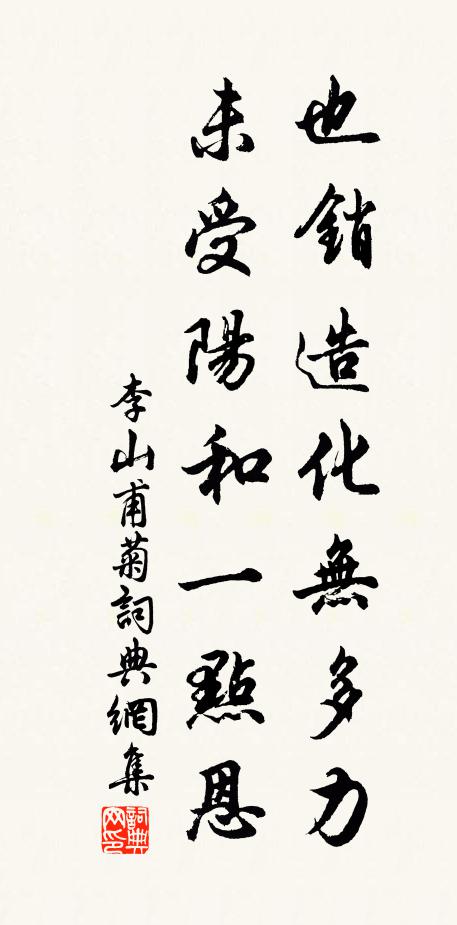 也銷造化無多力
未受陽和一點恩
李山甫菊詞典網集
詞典网印